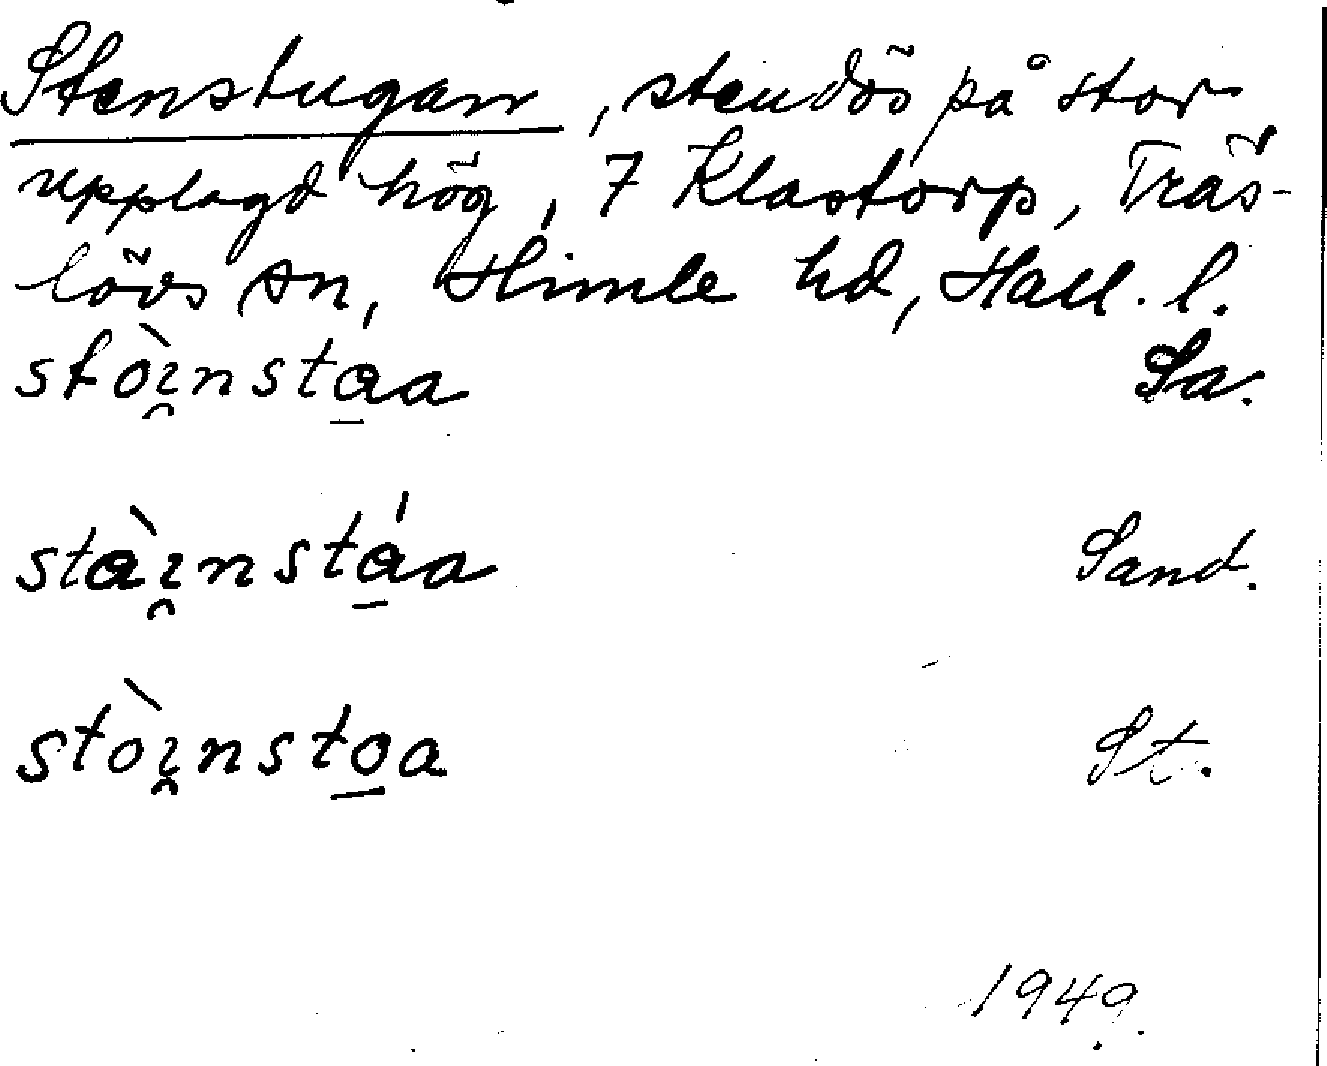 Stenstugan, stendös på stor
upplagd hög, 7 Klastorp, Träs-
lövs sn, Himle hd, Hall. l.
stòı̯nsta̱a Sa.
stàı̯nstá̱a Sand.
stòı̯nsto̱a St.
1949.